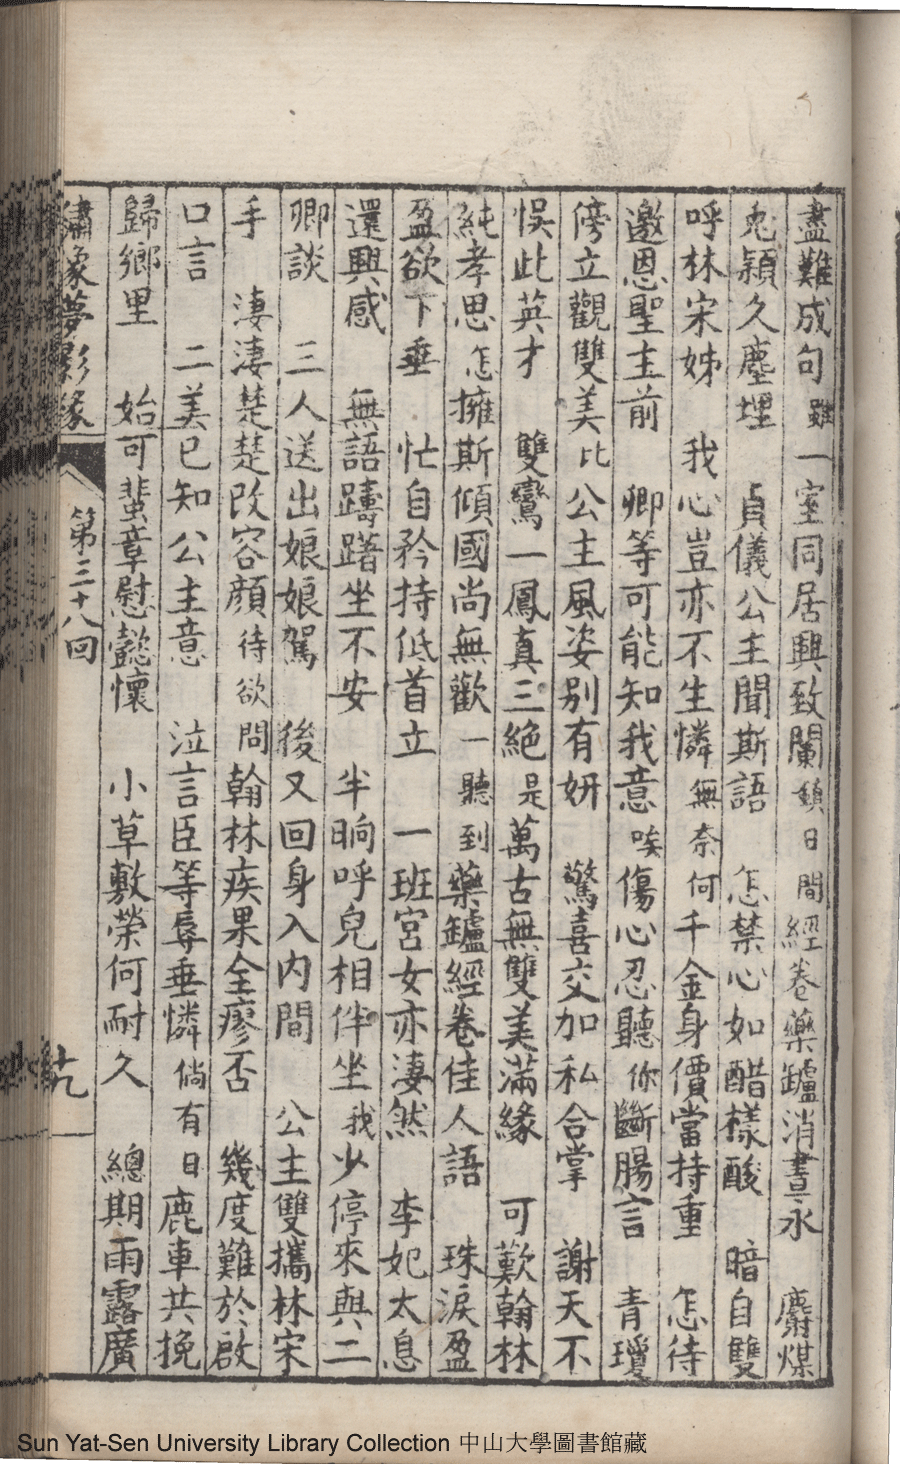 盡難成句 雖一室同居興致闌 鎮日間經卷藥鑪消晝永 麝煤
兎穎久塵埋 貞儀公主聞斯語 怎禁心如醋樣酸 暗自雙
呼林宋姊 我心豈亦不生憐 無奈何千金身價當持重 怎待
邀恩聖主前 卿等可能知我意 唉傷心忍聽你斷腸言 青瓊
傍立觀雙美 比公主風姿别有妍 驚喜交加私合掌 謝天不
悞此英才 雙鸞一鳳真三絕 是萬古無雙美滿緣 可歎翰林
純孝思 怎擁斯傾國尚無歡 一聽到藥鑪經卷佳人語 珠淚盈
盈欲下垂 忙自矜持低首立 一班宮女亦淒然 李妃太息
還興感 無語躊躇坐不安 半晌呼兒相伴坐 我少停來與二
卿談 三人送出娘娘駕 後又回身入内間 公主雙攜林宋
手 淒淒楚楚改容顔 待欲問翰林疾果全瘳否 幾度難於啟
口言 二美已知公主意 泣言臣等辱垂憐 倘有日鹿車共挽
歸鄉里 始可蜚章慰懿懷 小草敷榮何耐久 總期雨露廣
繡像夢影緣 第三十八回 九
Sun Yat-Sen University Library Collection 中山大學圖書館藏